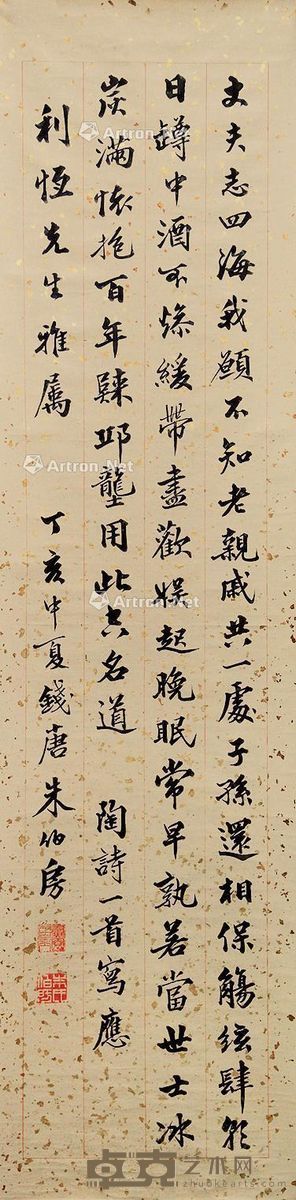 丈夫志四海我願不知老親戚共一處子孫還相保觴絃肆朝
日罇中酒不燥緩帶盡歡娛起晚眠常早孰若當世士冰
炭滿懷抱百年歸邱壟用此空名道 陶詩一首寫應
利恆先生雅屬 丁亥中夏錢唐朱伯房
Artron.Net
Artron.Net
Artron.Net
Artron.Net
卓克艺术网
zhuokearts.com